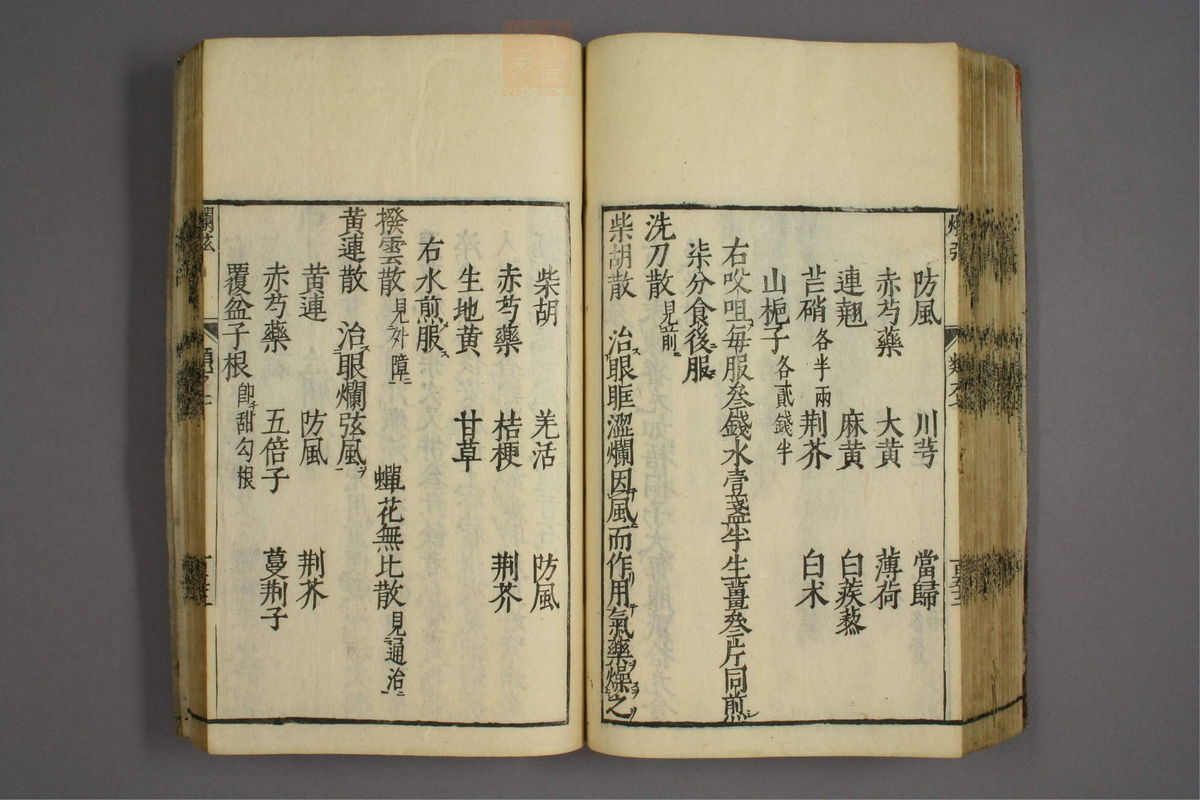 防風 川芎 當歸
赤芍藥 大黄 薄荷
連翹 麻黄 白蒺蔾
芒硝各半兩 荆芥 白术
山梔子各貳錢半
右㕮咀毎服叄錢水壹盞半生薑叄片同煎
柒分食後服
洗刀散見前ニ
柴胡散 治眼眶澀爛因風而作用氣藥燥之
柴胡 羌活 防風
赤芍藥 桔梗 荆芥
生地黄 甘草
右水煎服
撥雲散見外障ニ 蟬花無比散見通治ニ
黄連散 治眼爛弦風
黄連 防風 荆芥
赤芍藥 五倍子 蔓荆子
覆盆子根即甜勾根
爛弦